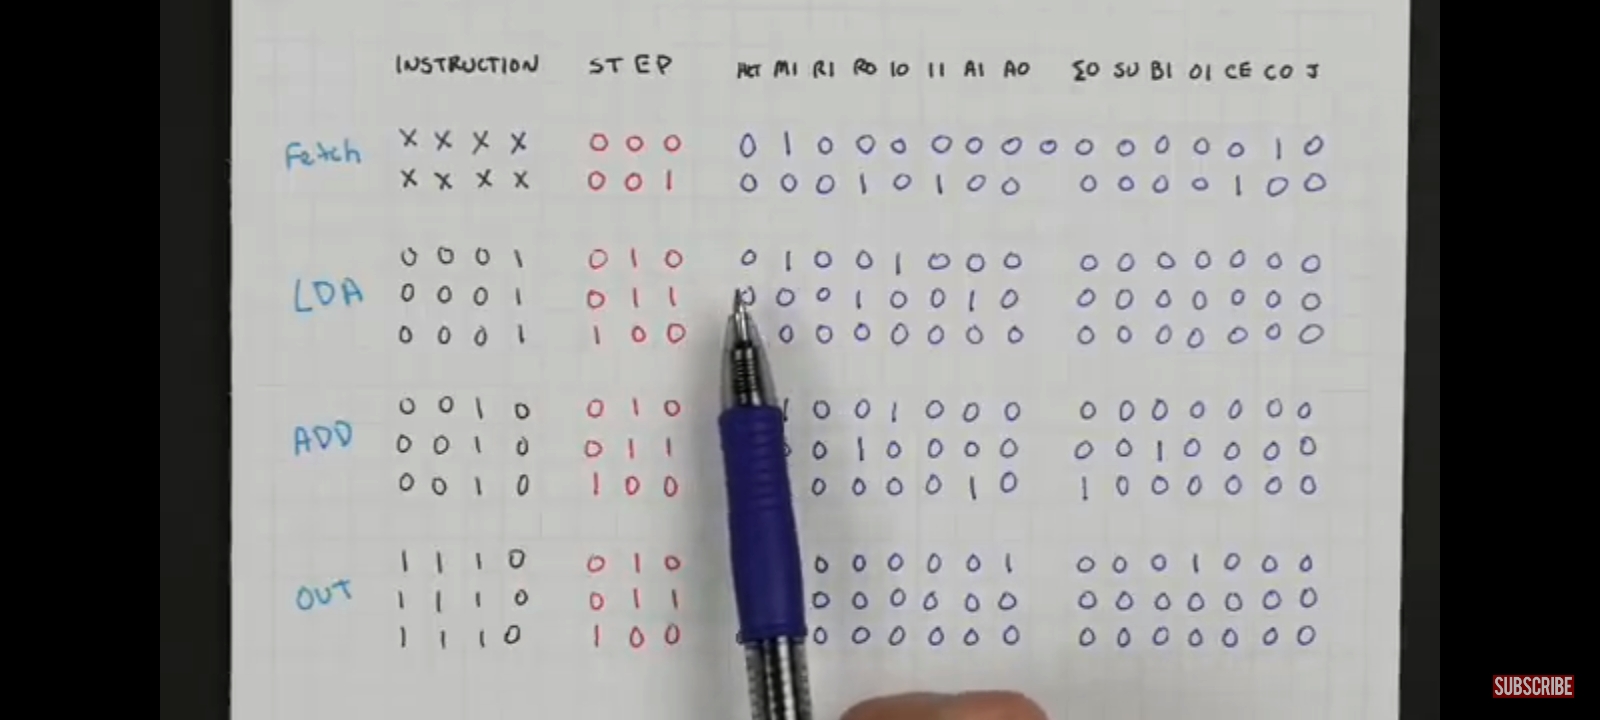 INSTRUCTION STEP HLT MI RI RO IO II AI AO ΣO SU BI OI CE CO J
Fetch X X X X 0 0 0 0 1 0 0 0 0 0 0 0 0 0 0 0 0 1 0
X X X X 0 0 1 0 0 0 1 0 1 0 0 0 0 0 0 1 0 0
LDA 0 0 0 1 0 1 0 0 1 0 0 1 0 0 0 0 0 0 0 0 0 0
0 0 0 1 0 1 1 0 0 0 1 0 0 1 0 0 0 0 0 0 0 0
0 0 0 1 1 0 0 0 0 0 0 0 0 0 0 0 0 0 0 0 0
ADD 0 0 1 0 0 1 0 1 0 0 1 0 0 0 0 0 0 0 0 0 0
0 0 1 0 0 1 1 0 0 1 0 0 0 0 0 0 1 0 0 0 0
0 0 1 0 1 0 0 0 0 0 0 1 0 1 0 0 0 0 0 0
OUT 1 1 1 0 0 1 0 0 0 0 0 0 1 0 0 0 1 0 0 0
1 1 1 0 0 1 1 0 0 0 0 0 0 0 0 0 0 0 0 0
1 1 1 0 1 0 0 0 0 0 0 0 0 0 0 0 0 0 0 0
SUBSCRIBE